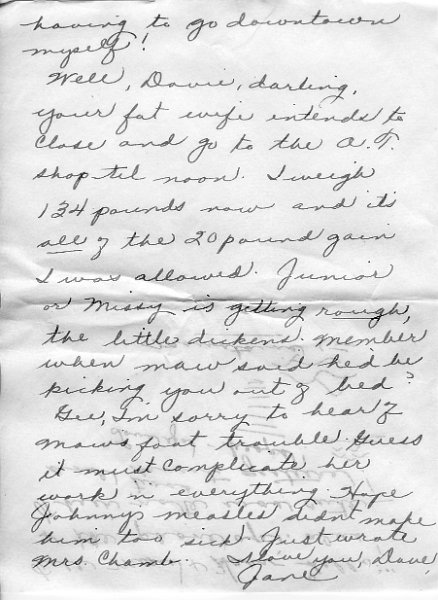 having to go downtown
myself!
Well, Davie, darling,
your fat wife intends to
close and go to the O.T.
shop til noon. I weigh
134 pounds now and its
all of the 20 pound gain
I was allowed. Junior
or Missy is getting rough,
the little dickens. Member
when maw said he'd be
kicking you out of bed?
Gee, I'm sorry to hear of
maws foot trouble. Guess
it must complicate her
work n everything. Hope
Johnny's measles didn't make
him too sick. Just wrote
Mrs. Chamb. I love you, Dave,
Jane